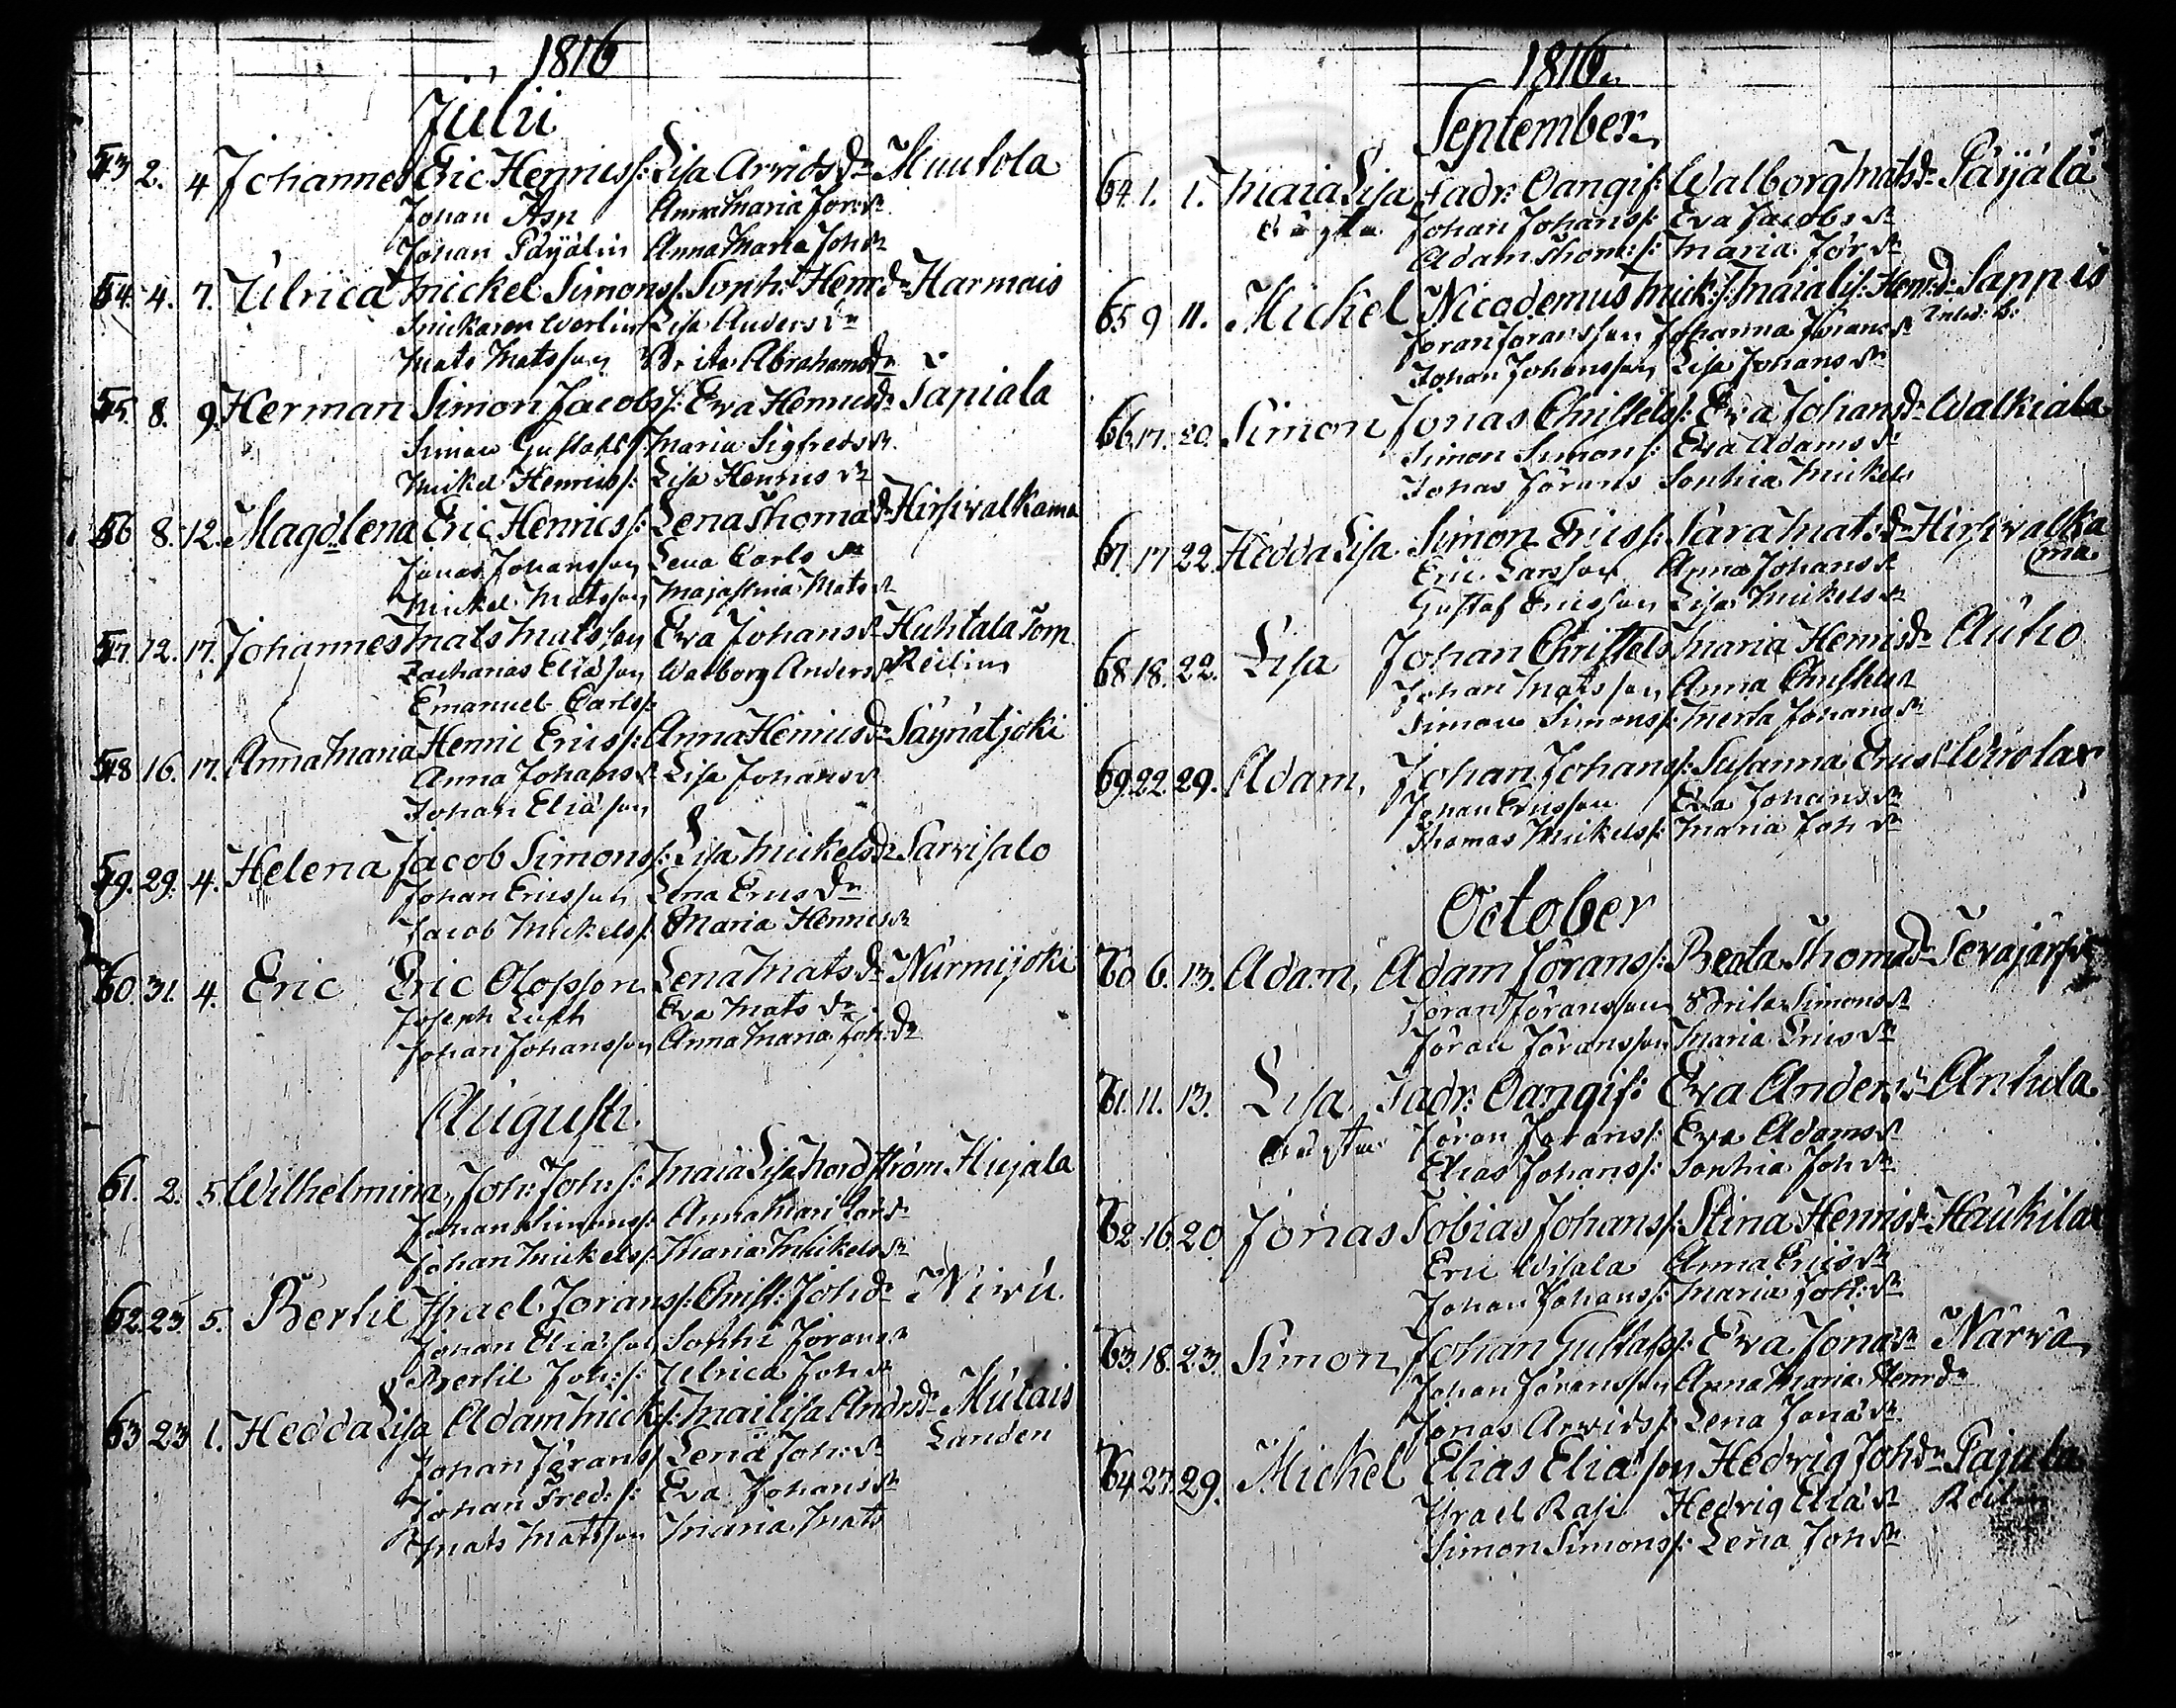 1816
Julii
53 2. 4 Johannes Eric Henricss: Lisa Arvids Dr Muutola
Johan Asp Anna Maria Jör: dr
Johan Päijälin Anna Maria Joh dr
54. 4. 7. Ulrica Mickel Simonss: Soph: Henr Dr Harmais
Snickaren Werlin Lisa Anders dr
Mats Matsson Brita Abrahams dr
55. 8. 9. Herman Simon Jacobs: Eva Henrics dr Sapiala
Simon Gustafs: Maria Sigfreds dr
Mickel Henricss: Lisa Henrics dr
56 8. 12. Magdlena Eric Henricss: Lena Thomæ dr Hirsivalkama
Jonas Johansson Lena Carls dr
Mickel Matsson Maja Stina Mats dr
57. 12. 17. Johannes Mats Matsson Eva Johans dr Huhtala Torp
Zacharias Eliasson Walborg Anders dr
Emanuel Carlss:
58 16. 17. Anna Maria Henric Ericss: Anna Henrics dr Säynätjoki
Anna Johans dr Lisa Johans dr
Johan Eliasson
59. 29. 4. Helena Jacob Simonss: Lisa Mickels dr Sarvisalo
Johan Ericsson Lena Erics dr
Jacob Mickelss: Maria Henrics dr
60. 31. 4. Eric Eric Olofsson Lena Mats dr Nurmijoki
Joseph Luft Eva Mats dr
Johan Johansson Anna Maria Joh: dr
Augusti
61. 2. 5. Wilhelmina, Joh: Joh: s: Maia Lisa Nordström Hujala
Johan Simonss: Anna Mari
Johan Mickelss: Maria Mickels dr
62. 23. 5. Bertil Israel Jöranss: Christ: Joh dr Niwu
Johan Eliasson Sophi Jörans dr
Bertil Joh: s: Ulrica Joh dr
63 23 1. Hedda Lisa Adam Mick s: Mailisa Andrs dr Mutais
Johan Jörans Lena Joh: dr Landen
Johan Fred: s: Eva Johans dr
Mats Matsson Maria Mats
1816.
September
64. 1. 1. Maia Lisa Fadr: Oangif: Walborg Mats dr Päijälä
oägta Johan Johanss: Eva Jacobs dr
Adam Thom: s: Maria Jör dr
65 9 11. Mickel Nicodemus Mick: s: Maialis: Henr: dr Sappis
Jöran Jöransson Johanna Jörans dr
Johan Johansson Lisa Johans dr
66. 17. 20. Simon Jonas Christers: Eva Johans dr Walkiala
Simon Simons: Eva Adams dr
Johas Jörans Sophia Mickels
67. 17 22. Hedda Lisa Simon Ericss: Sara Mats dr Hirsivalka
Eric Larsson Anna Johans dr ma
Gustaf Ericsson Lisa Mickels dr
68. 18. 22. Lisa Johan Christers Maria Henrics dr Autio
Johan Matsson Anna Christers dr
Simon Simonss: Merta Johans dr
69. 22. 29. Adam, Johan Johanss: Susanna Erics dr Wirolax
Johan Ericsson Eva Johans dr
Thomas Mickelss: Maria Joh dr
October
70 6. 13. Adam, Adam Jöranss: Beata Thomæ dr Tevajärfvi
Jöran Jöransson Brita Simons dr
Jöran Jöransson Maria Erics dr
71. 11. 13. Lisa Fadr: Oangif: Eva Anders dr Antula
oägta Jöran Jöranss: Eva Adams dr
Elias Johanss: Sophia Joh dr
72 16. 20 Jonas Tobias Johanss: Stina Henrics dr Haukilax
Eric Wisala Anna Erics dr
Johan Johanss: Maria Joh: dr
73. 18. 23. Simon Johan Gustafss: Eva Jonas dr Närvä
Johan Jöransson Anna Maria Henr dr
Jonas Arvids s: Lena Jonas dr
74 27. 29. Mickel Elias Eliasson Hedvig Joh dr Pajula
Israel Rasi Hedvig Elias dr
Simon Simonss: Lena Joh dr